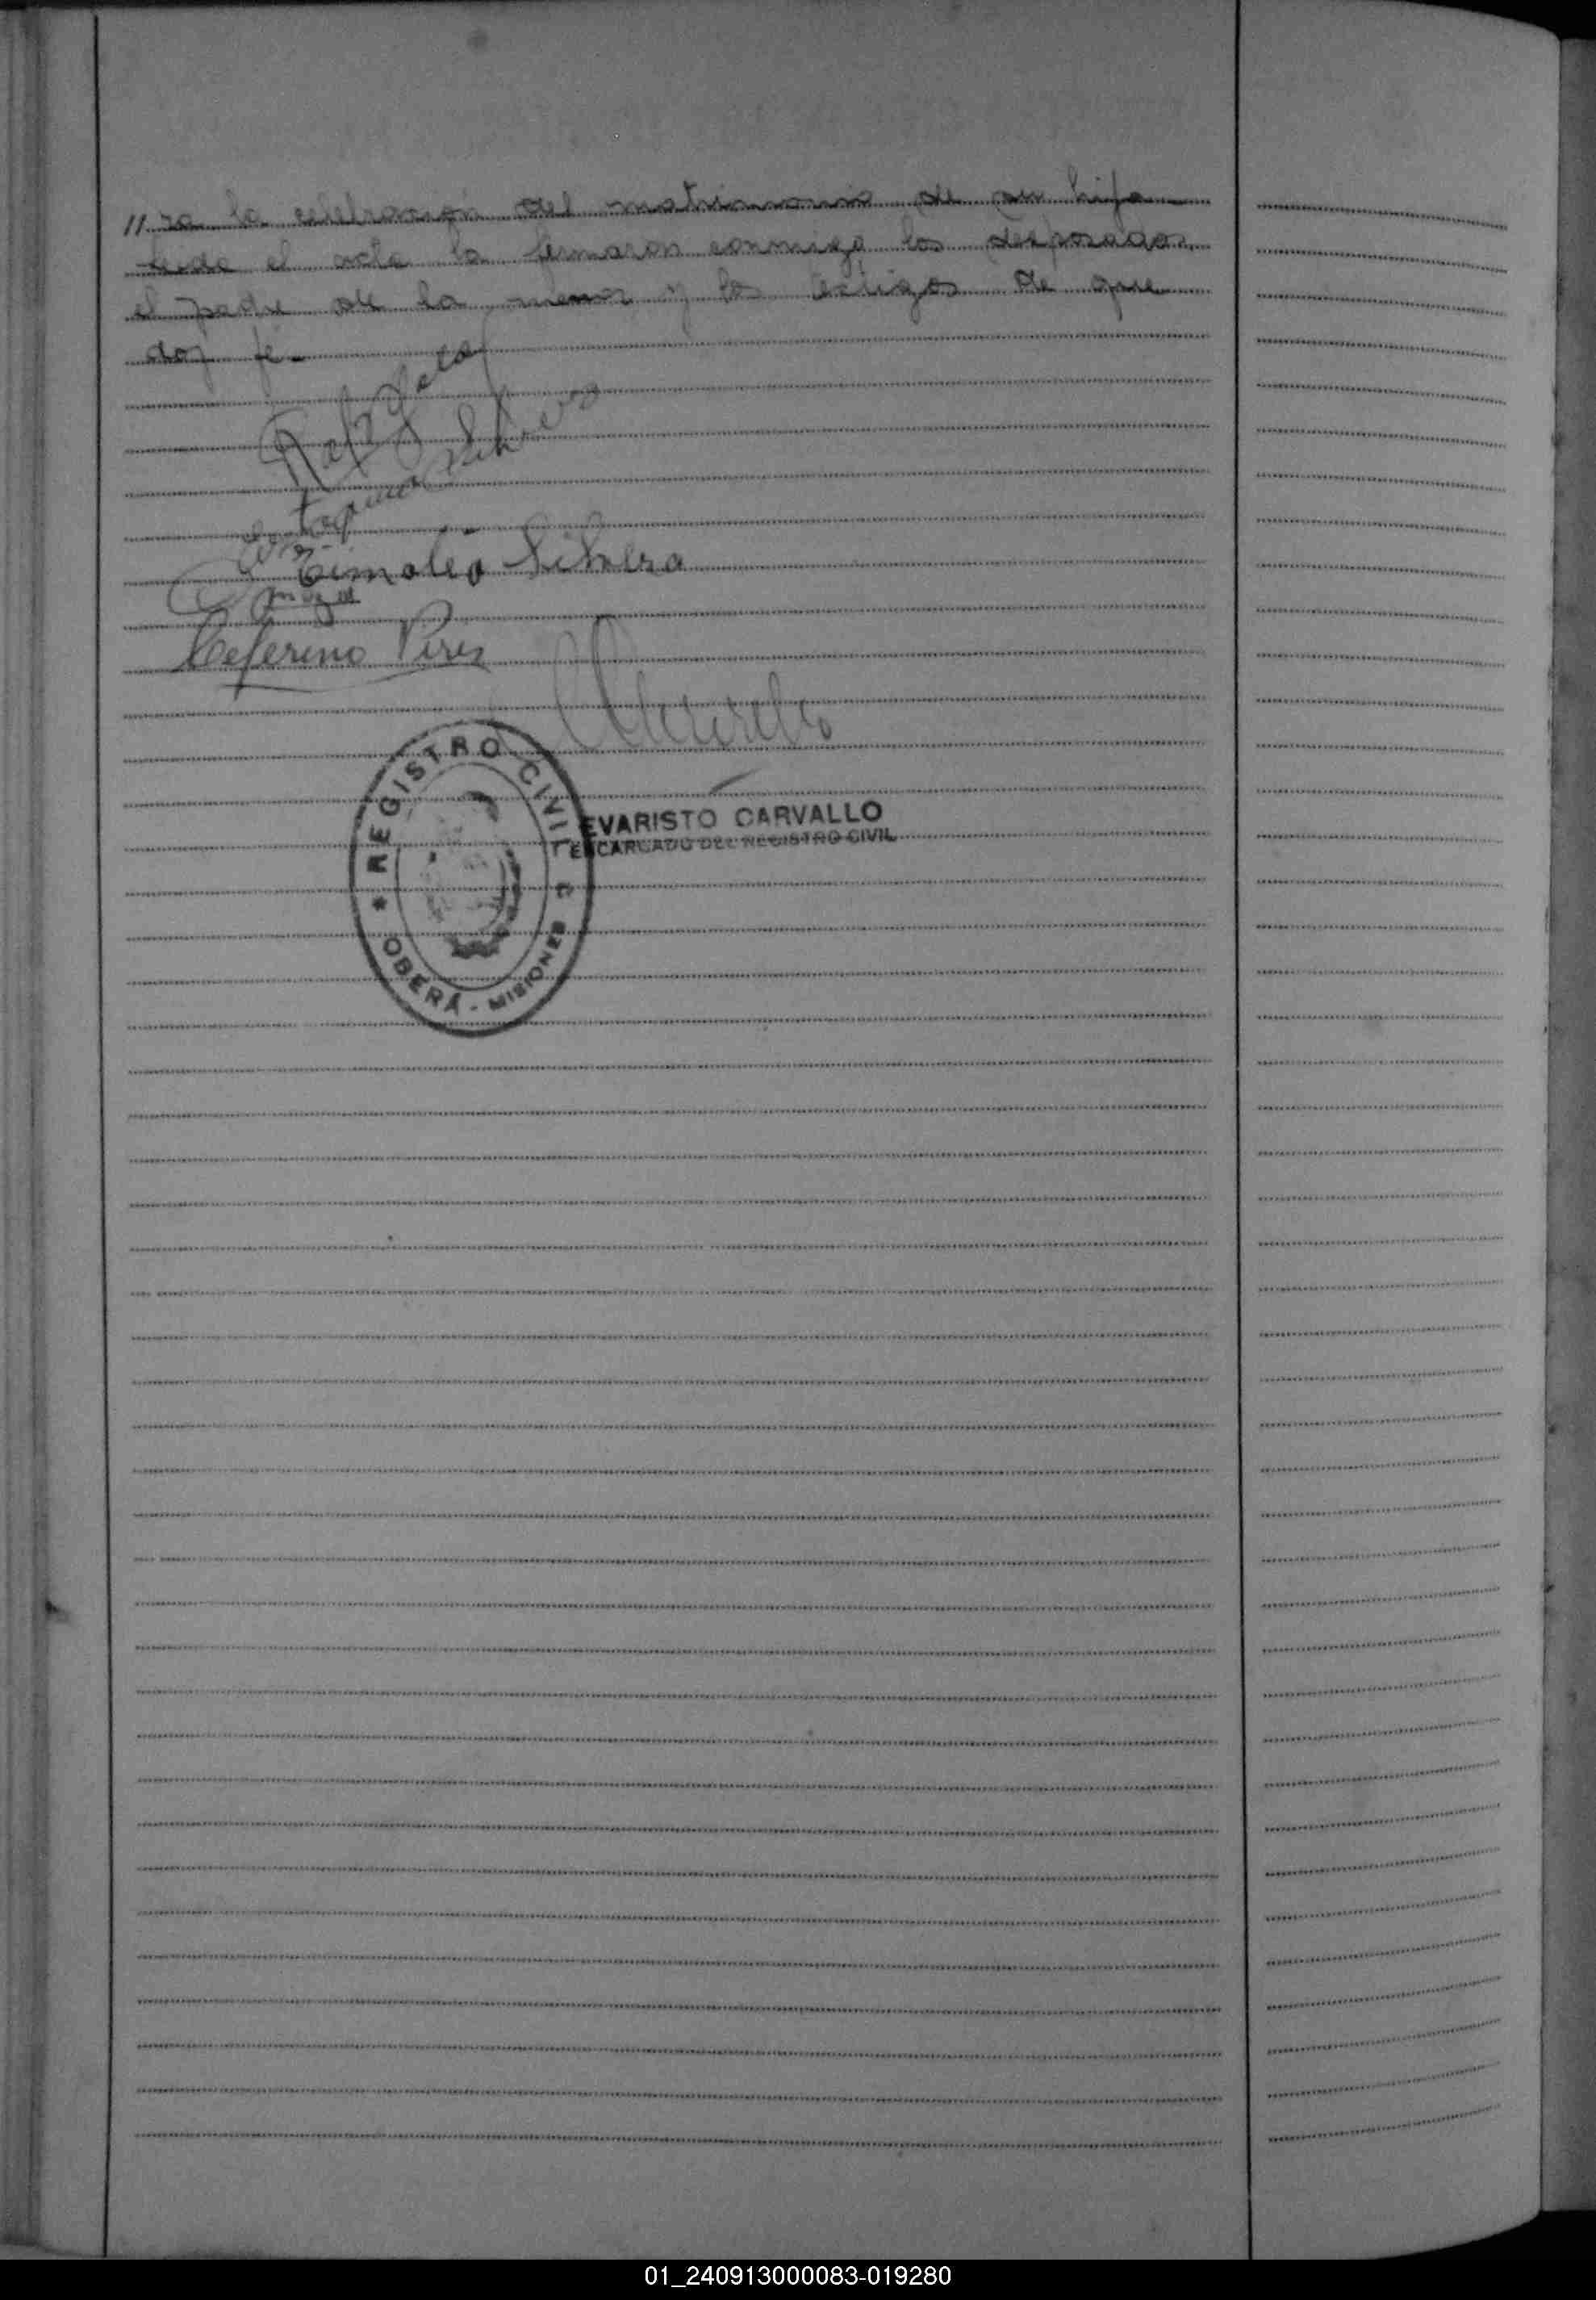 // ra la celebración del matrimonio de su hija
Leida el acta la firmaron conmigo los desposados
el padre de la menor y los testigos de que
doy fé-
Timoleo Silvera
Ceferino Pires
REGISTRO CIVIL
OBERÁ - MISIONES
EVARISTO CARVALLO
ENCARGADO DEL REGISTRO CIVIL
01_240913000083-019280